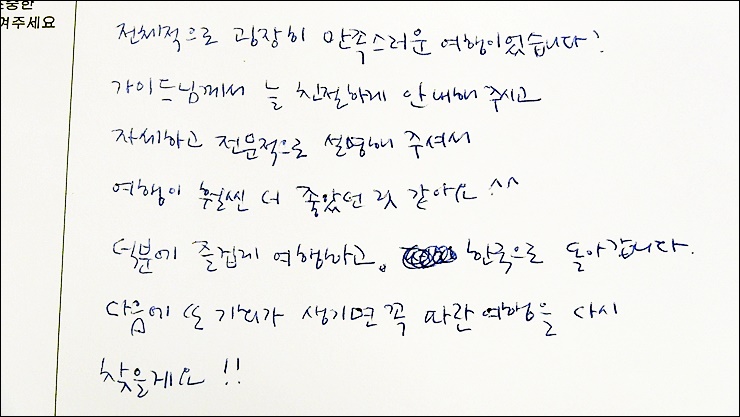 중한
겨주세요
전체적으로 굉장히 만족스러운 여행이었습니다!
가이드님께서 늘 친절하게 안내해 주시고
자세하고 전문적으로 설명해 주셔서
여행이 훨씬 더 좋았던 것 같아요 ^^
덕분에 즐겁게 여행하고, 한국으로 돌아갑니다.
다음에 또 기회가 생기면 꼭 파란 여행을 다시
찾을게요!!